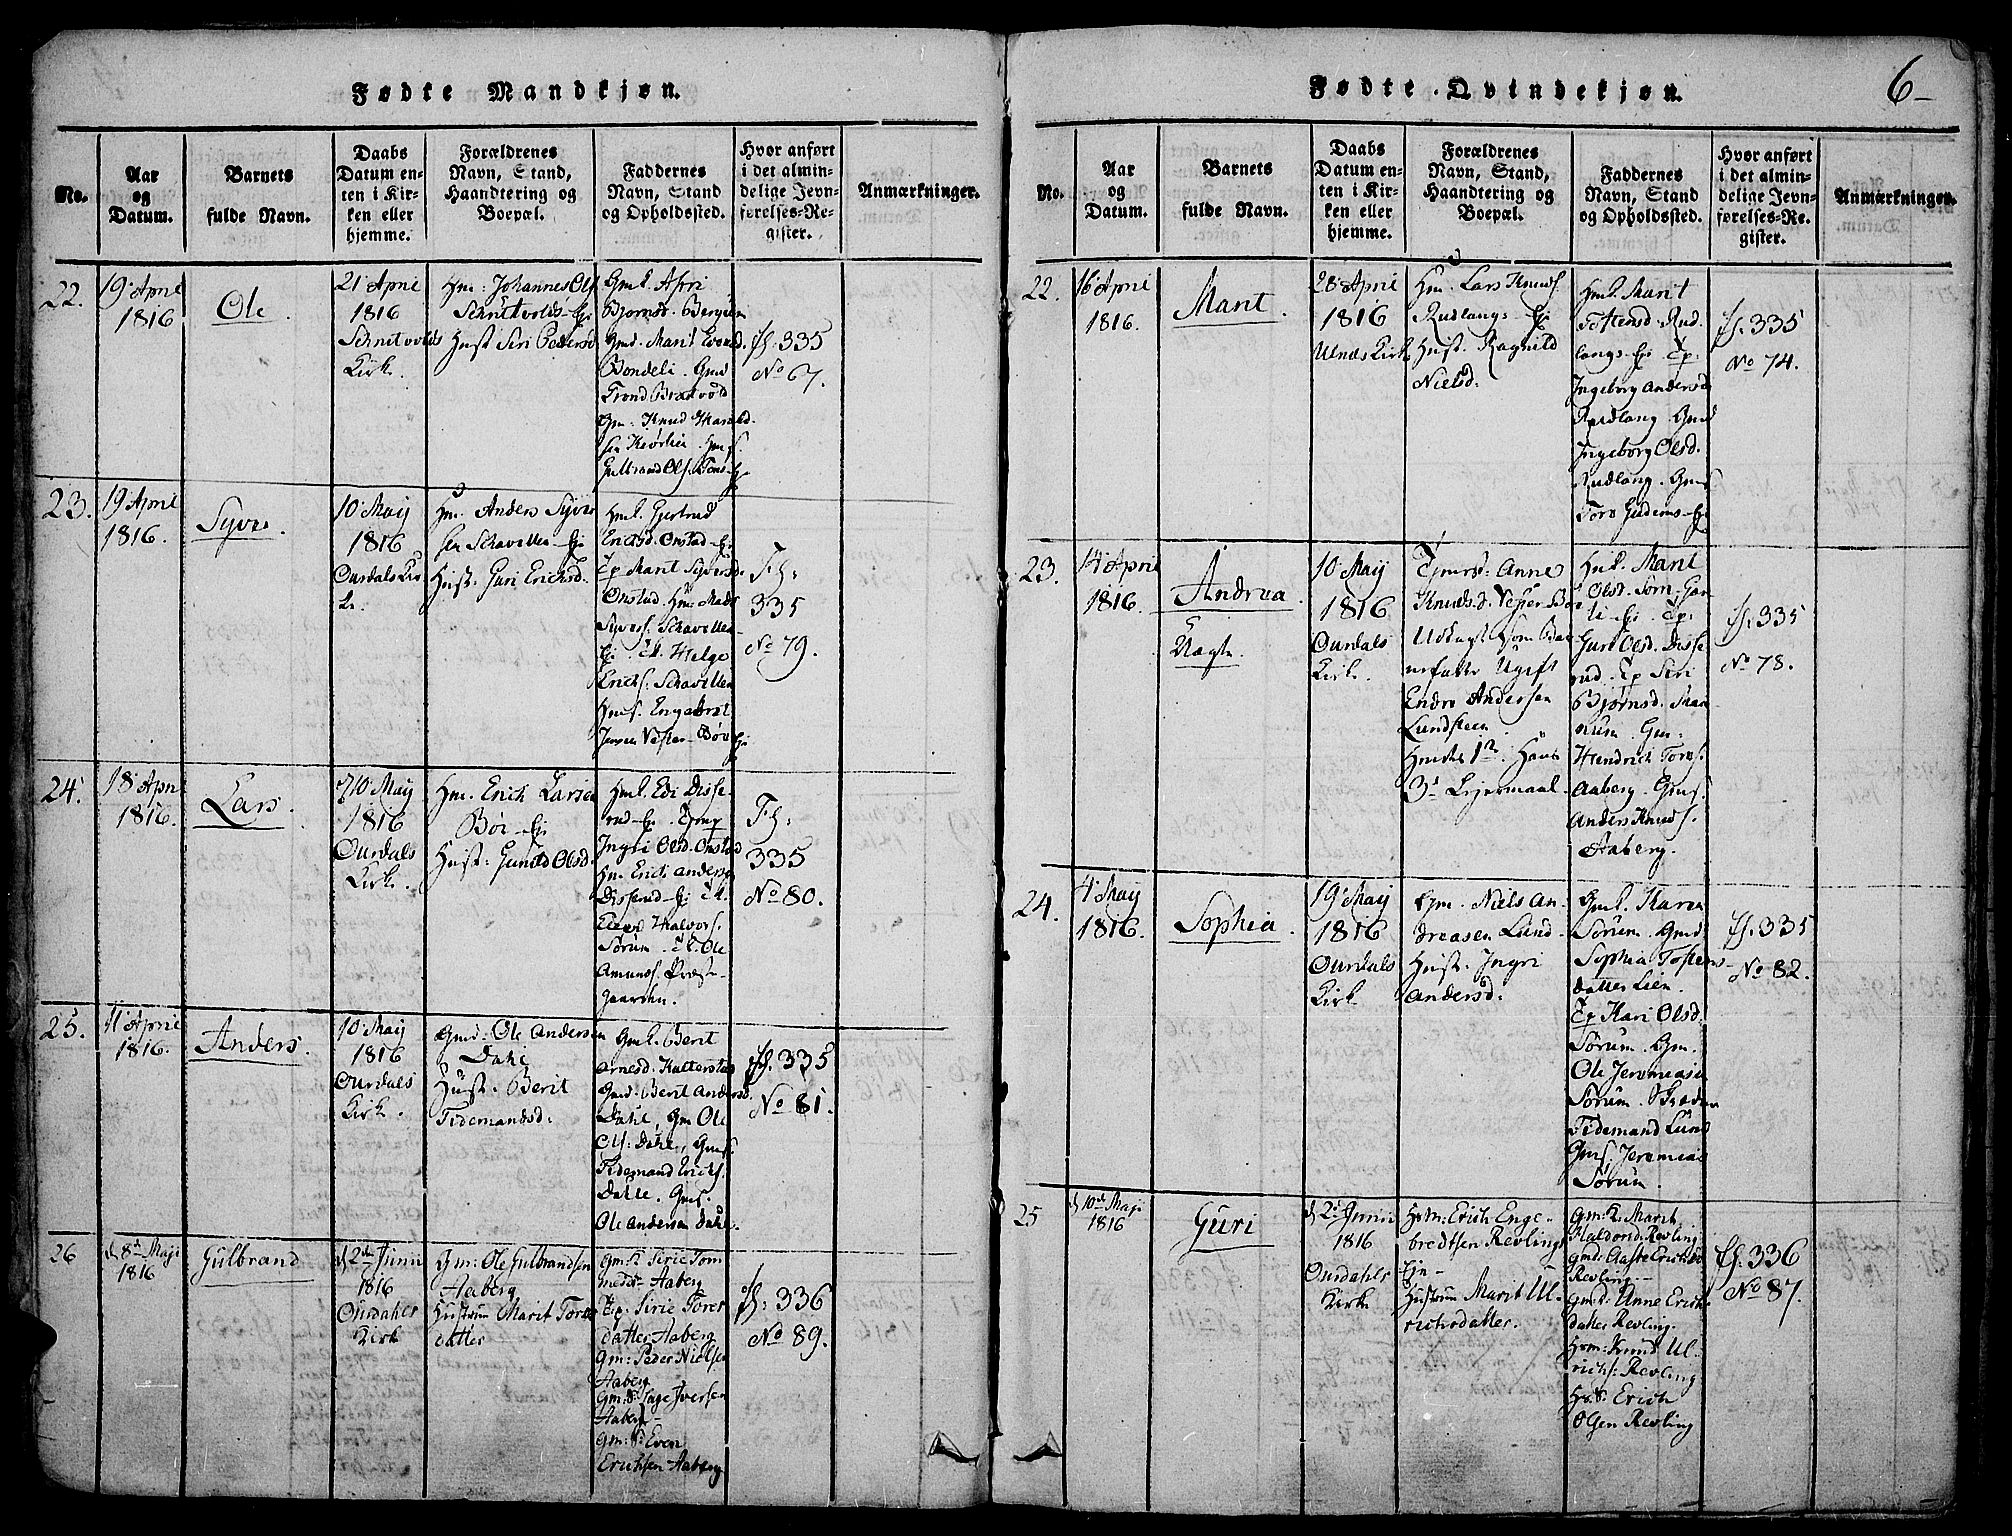 Fødte Mandkjøn.
No.
Aar
og
Datum.
Barnets
fulde Navn.
Daabs
Datum en-
ten i Kir-
ken eller
hjemme.
Forældrenes
Navn, Stand,
Haandtering og
Boepæl.
Faddernes
Navn, Stand
og Opholdssted.
Hvor anført
i det almin-
delige Jevn-
førelses-Re-
gister.
Anmærkninger.
22.
19 April
1816
Ole
21 April
1816
Kirk.
Hm: Johannes Ols
Hust Siri Peders
Bjornsd.
Gmd. Marit
Bondeli. Gmd
Trond
Gm: Knud
fl. 335
No 67.
23.
19 April
1816.
Syver.
10 May
1816
Ourdals Kir
k.
Hm. Anders Syver
sen Schavellen Ej
Hust. Guri Ericksd.
Hmk. Gjertrud
Ericksd. Onstad Ej
Tp Marit Syversd.
Onstad. Hm Mads
Syvers. Schavellen
Ej. Tk. Helge
Erichs. Schavellen
Hms. Engebret
Jensen Vester-Bøe Ej
Fl:
335
No 79.
24.
18 April
1816.
Lars.
10 May
1816
Ourdals
Kirk.
Hm. Erich Larsen
Bøe Ej
Hust: Gunild Olsd.
Hmk. Edi Disse
rud Ej. Tjmp
Ingri Olsd. Onstad
Hm. Erich Anders
Disserud Ej Tk.
Halvors.
Sørum. Tk. Ole
Amunds. Præste-
gaarden.
Fl:
335
No 80.
25.
11 April
1816.
Anders.
10 May
1816
Ourdals
Kirk.
Gmd: Ole Andersen
Dahl
Hust: Berit
Tidemandsd:
Gmk. Berit
Arnesd.
Gmd. Berit Andersd.
Dahle, Gm Ole
Ols: Dahle, Gms.
Tidemand Erichs.
Dahle. Gms.
Ole Andersen Dahle.
fl. 335
No 81.
26
d 8de Maji
1816
Gulbrand
d 2den Junii
1816
Ourdahls
Kirk
Gm: Ole Gulbrandsen
Aaberg
Hustrue Marit Tores
datter
Gm:K Sirie Tom
Aaberg
Tp: Sirie Tores
datter Aaberg
Gm: Peder Nielsen
Aaberg
Gm:S: Iversen
Aaberg
Gm:S: Even
Erichsen Aaberg
fl: 336
No 89.
Fødte Qvindekjøn.
6
No.
Aar
og
Datum.
Barnets
fulde Navn.
Daabs
Datum en-
ten i Kir-
ken eller
hjemme.
Forældrenes
Navn, Stand,
Haandtering og
Boepæl.
Faddernes
Navn, Stand
og Opholdssted.
Hvor anført
i det almin-
delige Jevn-
førelses-Re-
gister.
Anmærkninger.
22.
16 April
1816.
Marit.
28 April
1816
Ulnæs Kirk
Hm. Lars Knuds.
Rudlangs Ej
Hust. Ragnild
Nielsd.
Hmk. Marit
Tostensd. Rud
langs Ej Tp.
Ingeborg Andersd
Rudlang. Gmd
Ingeborg Olsd.
Rudlang. Gms
Tore
fl. 335
No 74.
23.
14 April
1816.
Andrea
Uægte.
10 May
1816
Ourdals
Kirk.
Tjenesd: Anne
Knudsd. Vester Bøe
Udlagt som Bar
nefader Ugift
Endre Andersen
Lundsteen
Hendes 1te Hans
3de Lejermaal.
Hmk. Marit
Olsd.
Guri Olsd. Disse
rud. Tp Siri
Bjørnsd.
Gm.
Hendrich Tores.
Aaberg. Gms.
Anders Knuds.
Aaberg.
fl. 335
No 78.
24.
4 May
1816.
Sophia.
19 May
1816
Ourdals
Kirk
Gm. Niels An-
dreasen Lund
Hust. Ingri
Andersd.
Gmk. Karen
Sørum. Gmd
Sophia Tostens-
datter Lien.
Tp Kari Olsd.
Sørum. Gm.
Ole Jeremiasen
Sørum.
Tidemand Lund
Gms. Jeremias
Sørum.
fl. 335
No 82.
25
d 10de Maji
1816
Guri
d 2 Junii
1816
Ourdahls
Kirk
Hm: Erich Enge-
bredtsen Revlings
Ejn
Hustrue Marit Ul-
richsdatter.
Gm:K: Marit
Haldorsd: Revling
Gmd: Aaste Erichsd
Revling
Gmd: Anne Erichs-
datter Revling.
Hm: Knud Ul-
richs: Revling
Hs: Erich
Olsen Revling
fl. 336
No 87.